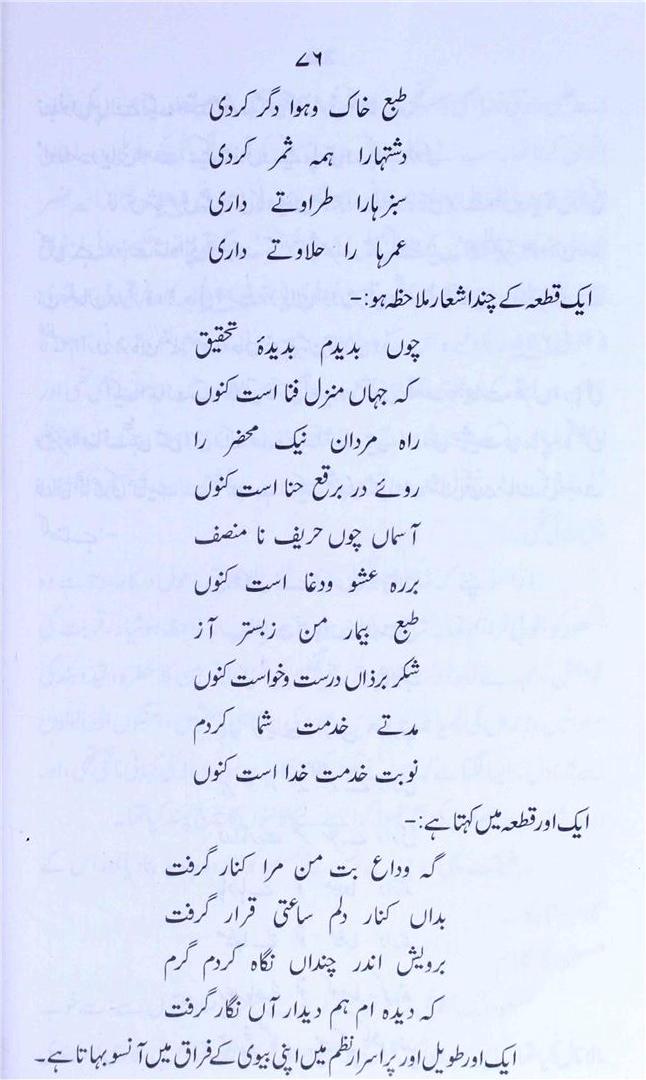 ۷۶
طبع خاک وہوا دگر کردی
دشتہارا ہمہ ثمر کردی
سبزہارا طراوتے داری
عمرہا را حلاوتے داری
ایک قطعہ کے چند اشعار ملاحظہ ہو:-
چوں بدیدم بدیدۂ تحقیق
کہ جہاں منزل فنا است کنوں
راہ مردان نیک محضر را
روئے در برقع حنا است کنوں
آسماں چوں حریف نا منصف
بررہ عشو ودغا است کنوں
طبع بیمار من زبستر آز
شکر برذاں درست وخواست کنوں
مدتے خدمت شما کردم
نوبت خدمت خدا است کنوں
ایک اور قطعہ میں کہتا ہے:-
گہ وداع بت من مرا کنار گرفت
بداں کنار دلم ساعتی قرار گرفت
برویش اندر چنداں نگاہ کردم گرم
کہ دیدہ ام ہم دیدار آں نگار گرفت
ایک اور طویل اور پراسرار نظم میں اپنی بیوی کے فراق میں آنسو بہاتا ہے۔